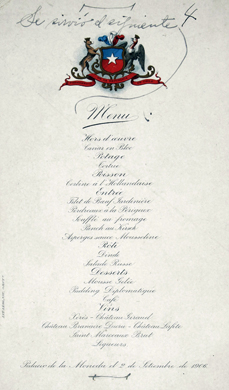 Se sirvió el siguiente 4
Menu
Hors d'œuvre
Caviar en Bloc
Potage
Tortue
Poisson
Corbina à l'Hollandaise
Entrée
Filet de Bœuf Jardinière
Perdreaux à la Périgueux
Souffle au fromage
Punch au Kirsch
Asperges sauce Mousseline
Rôti
Dinde
Salade Russe
Desserts
Mousse Gelée
Pudding Diplomatique
Café
Vins
Xérès - Château Giraud
Château - Château Lafite
Saint Marceaux Brut
Liqueurs
Palacio de la Moneda el 2 de Setiembre de 1906.